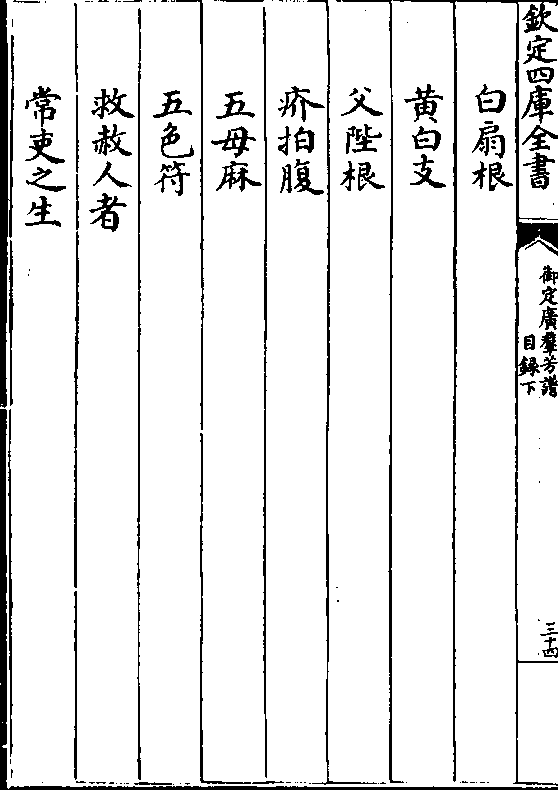 欽定四庫全書
御定廣羣芳譜
目録下
三十四
白扇根
黄白支
父陛根
疥拍腹
五母麻
五色符
救赦人者
常吏之生